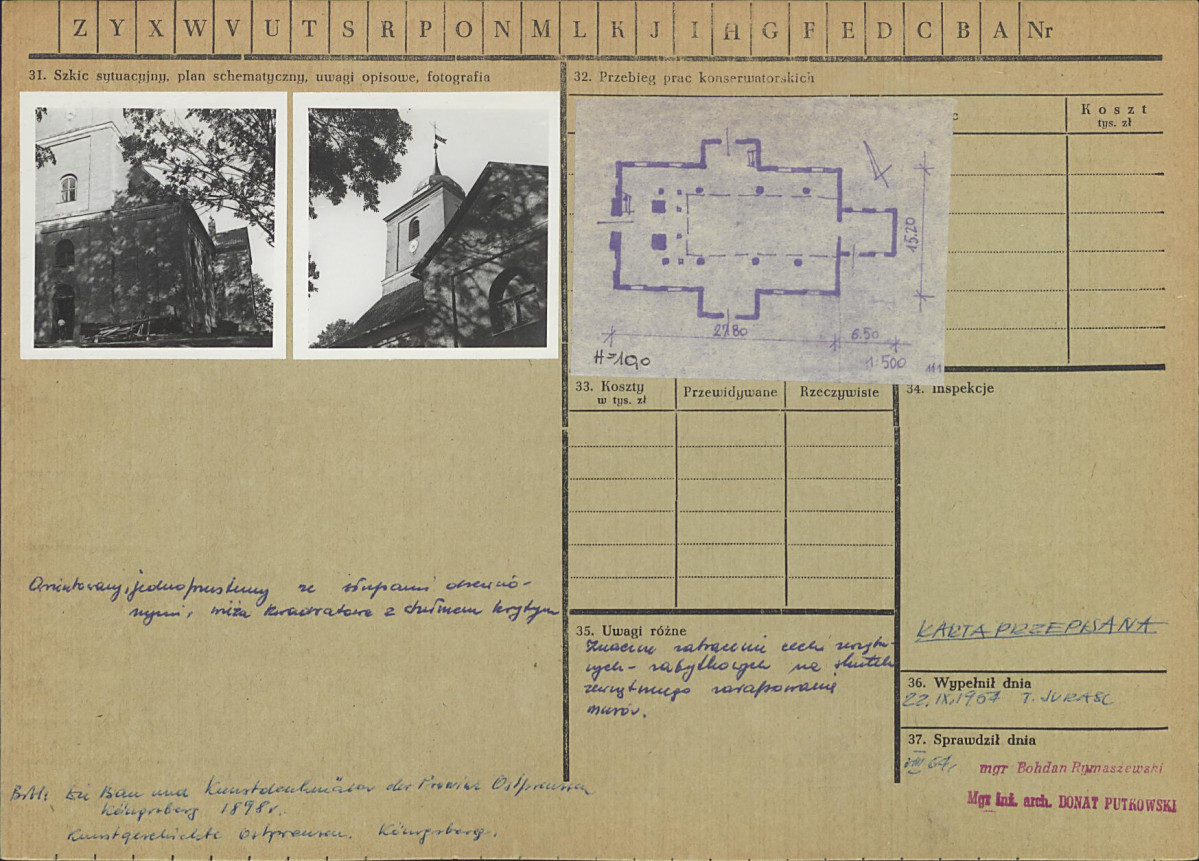 Z Y X W V U T S R P O N M L K J I H G F E D C B A Nr
31. Szkic sytuacyjny, plan schematyczny, uwagi opisowe, fotografia
32. Przebieg prac konserwatorskich
Koszt
tys. zł
15.20
27.80
6.50
H=19,0
1:500
111
33. Koszty
w tys. zł
Przewidywane
Rzeczywiste
34. Inspekcje
Orientowany, jednoprzestrzenny ze słupami drewnia-
nymi, wieża kwadratowa z chełmem krytym
35. Uwagi różne
Znaczne zatracenie cech
zabytkowych na skutek
zewnętrznego
murów.
KARTA PRZEPISANA
36. Wypełnił dnia
22.IX.1957 T. JURASZ
37. Sprawdził dnia
VIII 67,
mgr Bohdan Rymaszewski
Mgr inż. arch. DONAT PUTKOWSKI
Bibl: Die Bau und Kunstdenkmäler der Provinz Ostpreussen
Königsberg 1898 r.
Kunstgeschichte Ostpreussen. Königsberg.